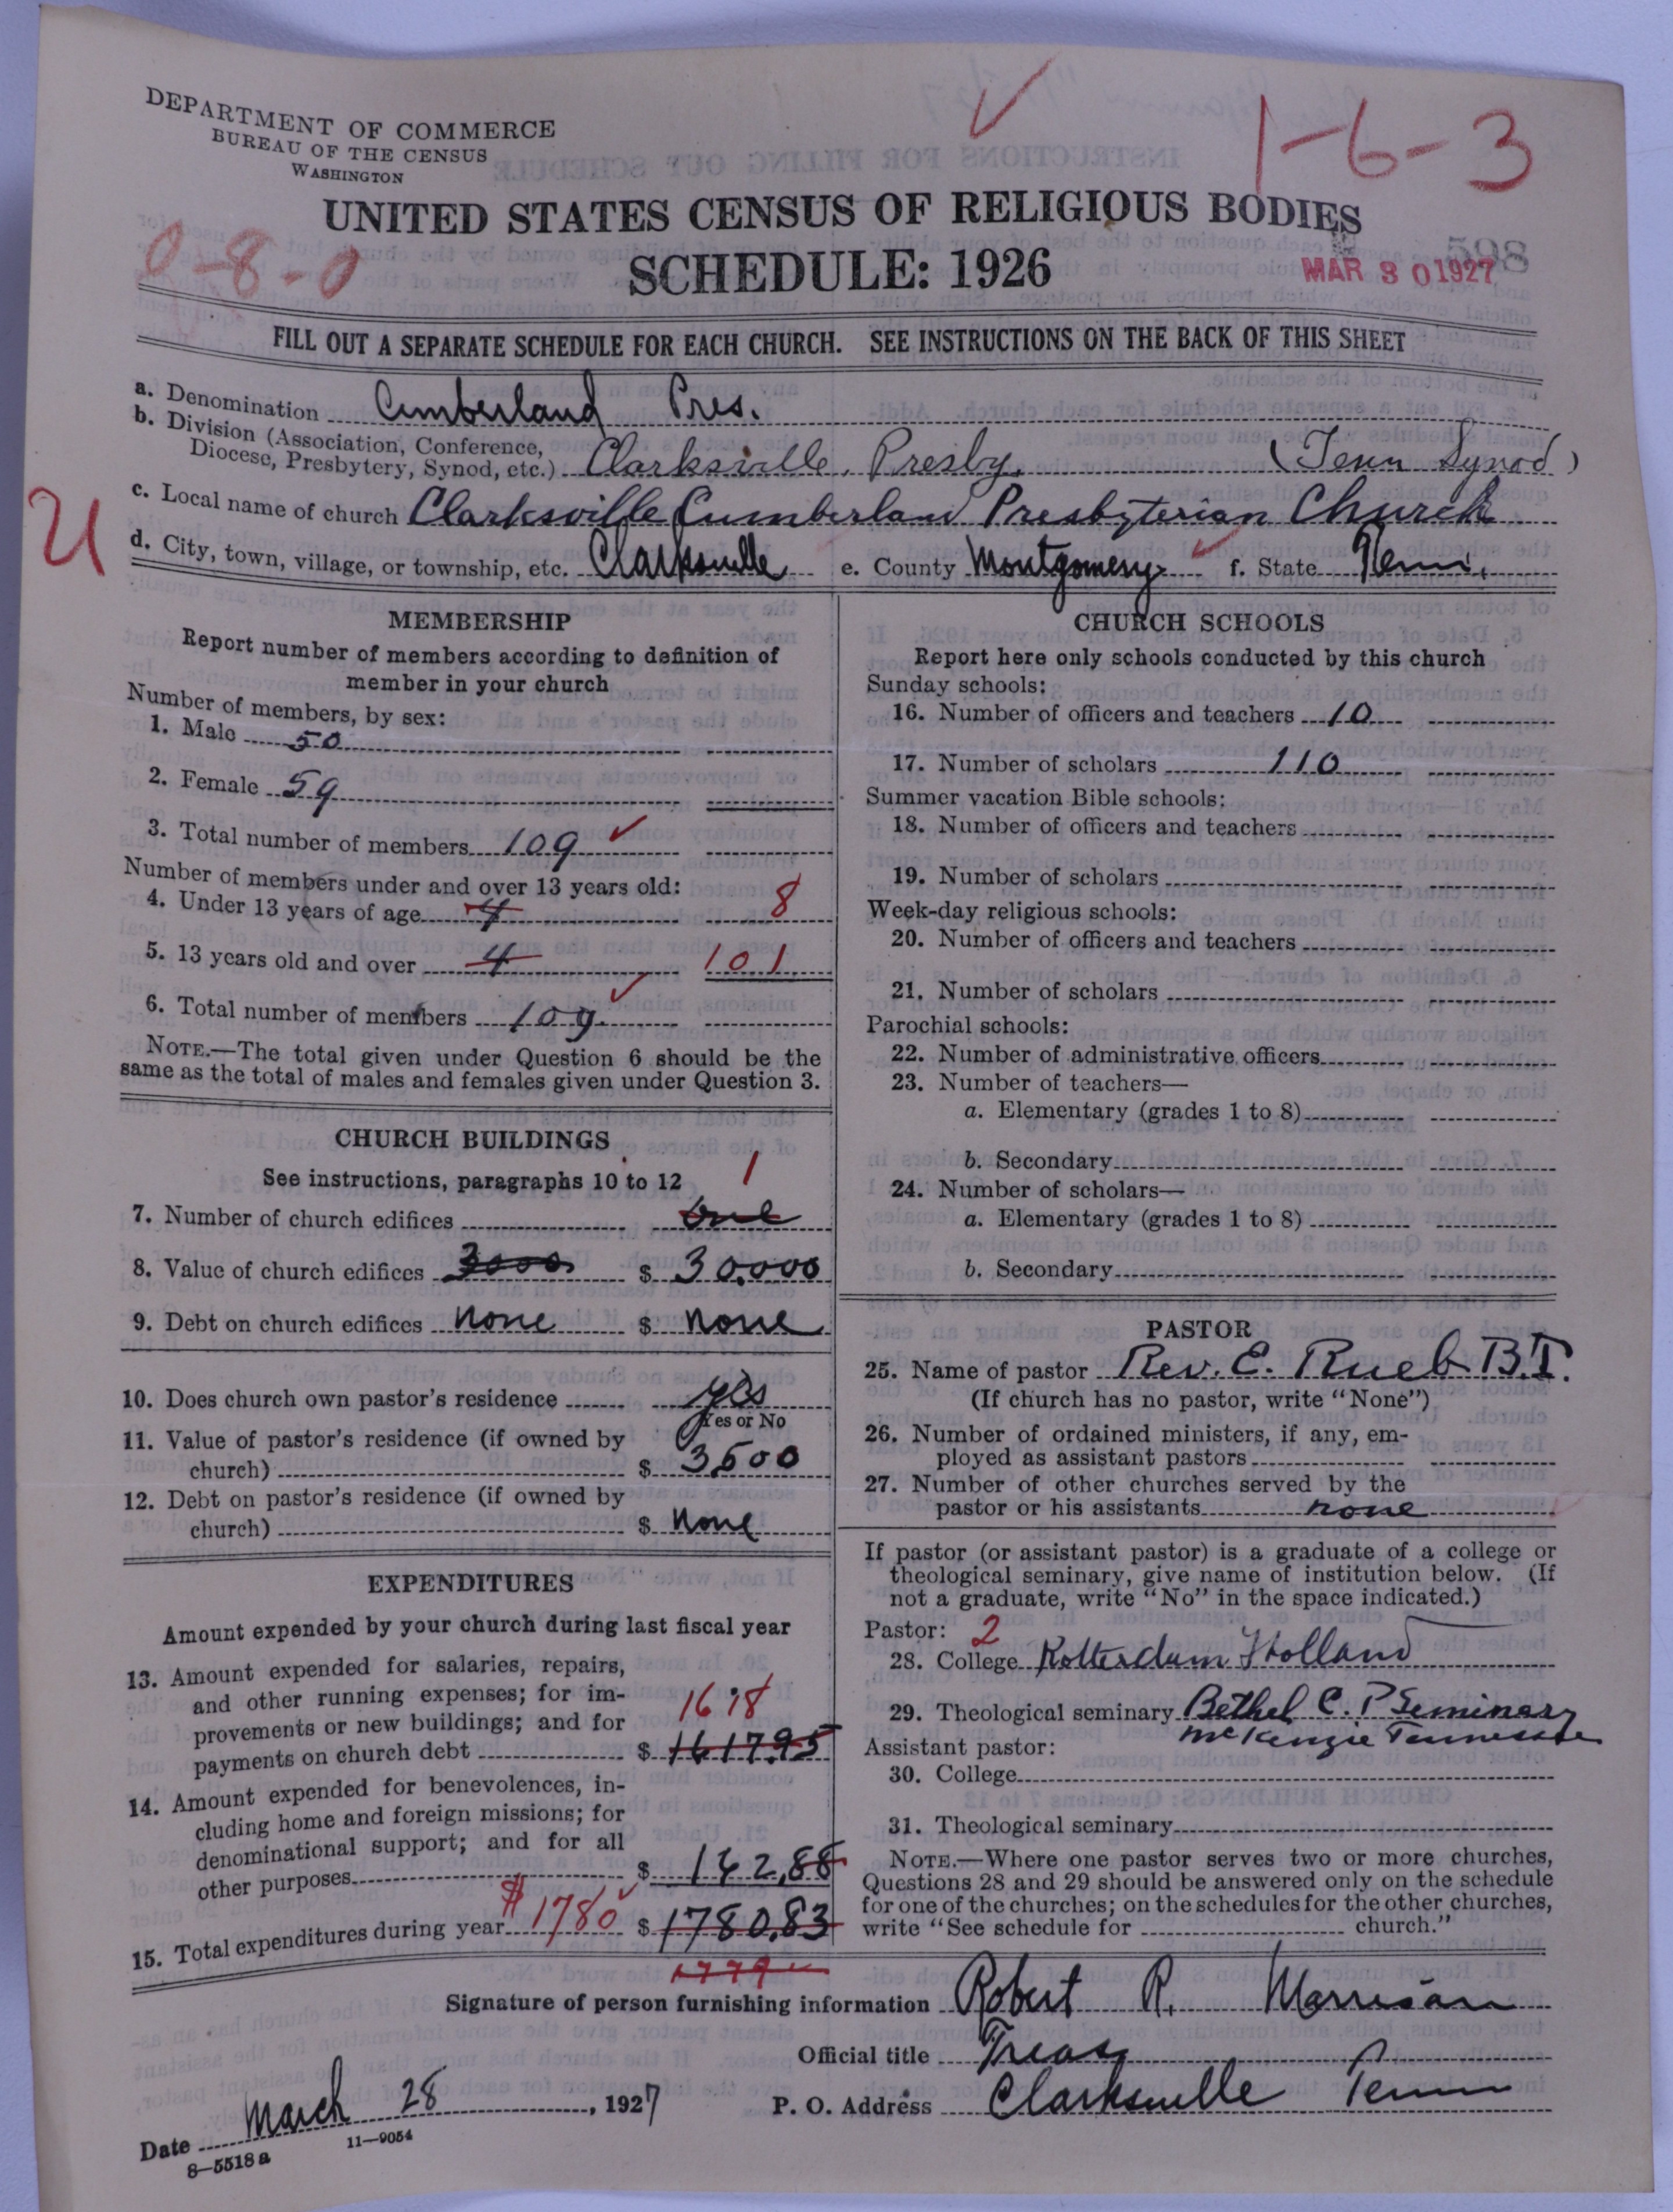 DEPARTMENT OF COMMERCE
BUREAU OF THE CENSUS
WASHINGTON
1-6-3
UNITED STATES CENSUS OF RELIGIOUS BODIES
SCHEDULE: 1926
0-8-0
598
MAR 30 1927
FILL OUT A SEPARATE SCHEDULE FOR EACH CHURCH. SEE INSTRUCTIONS ON THE BACK OF THIS SHEET
a. Denomination Cumberland Pres.
b. Division (Association, Conference,
Diocese, Presbytery, Synod, etc.) Clarksville, Presby. (Tenn Synod)
U
c. Local name of church Clarksville Cumberland Presbyterian Church
d. City, town, village, or township, etc. Clarksville e. County Montgomery f. State Tenn.
MEMBERSHIP
Report number of members according to definition of
member in your church
Number of members, by sex:
1. Male 50
2. Female 59
3. Total number of members 109
Number of members under and over 13 years old:
4. Under 13 years of age 4 8
5. 13 years old and over 4 101
6. Total number of members 109
NOTE.—The total given under Question 6 should be the
same as the total of males and females given under Question 3.
CHURCH BUILDINGS
See instructions, paragraphs 10 to 12
1
7. Number of church edifices one
8. Value of church edifices 3000 $ 30,000
9. Debt on church edifices none $ none
10. Does church own pastor's residence yes
Yes or No
11. Value of pastor's residence (if owned by
church) $ 3,500
12. Debt on pastor's residence (if owned by
church) $ None
EXPENDITURES
Amount expended by your church during last fiscal year
13. Amount expended for salaries, repairs,
and other running expenses; for im-
provements or new buildings; and for
1618
payments on church debt $ 1617.95
14. Amount expended for benevolences, in-
cluding home and foreign missions; for
denominational support; and for all
other purposes $ 162.88
15. Total expenditures during year $1780 $ 1780.83
1779
CHURCH SCHOOLS
Report here only schools conducted by this church
Sunday schools:
16. Number of officers and teachers 10
17. Number of scholars 110
Summer vacation Bible schools:
18. Number of officers and teachers
19. Number of scholars
Week-day religious schools:
20. Number of officers and teachers
21. Number of scholars
Parochial schools:
22. Number of administrative officers
23. Number of teachers—
a. Elementary (grades 1 to 8)
b. Secondary
24. Number of scholars—
a. Elementary (grades 1 to 8)
b. Secondary
PASTOR
25. Name of pastor Rev. E. Rueb B.T.
(If church has no pastor, write "None")
26. Number of ordained ministers, if any, em-
ployed as assistant pastors
27. Number of other churches served by the
pastor or his assistants none
If pastor (or assistant pastor) is a graduate of a college or
theological seminary, give name of institution below. (If
not a graduate, write "No" in the space indicated.)
Pastor: 2
28. College Rotterdam Holland
29. Theological seminary Bethel C. P Seminary
McKenzie Tennessee
Assistant pastor:
30. College
31. Theological seminary
NOTE.—Where one pastor serves two or more churches,
Questions 28 and 29 should be answered only on the schedule
for one of the churches; on the schedules for the other churches,
write "See schedule for church."
Signature of person furnishing information Robert R. Morrison
Official title Treas
Date March 28, 1927 P. O. Address Clarksville Tenn
8—5518a 11—9054